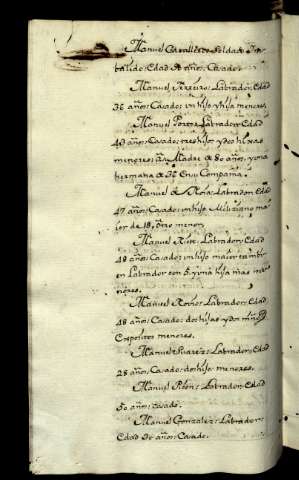 Manuel Cavallero: Soldado In-
valido: Edad 50 años: Casado.
Manuel Ferreiro: Labrador: Edad
36 años: Casado: un hijo y hija menores.
Manuel Labrador: Edad
40 años: Casado: tres hijos y dos hijas
menores: su Madre de 80 años, y una
hermana de 36 En su Compañia.
Manuel de Labrador: Edad
47 años: Casado: un hijo Miliziano ma-
ior de 18, otro menor.
Manuel Labrador: Edad
48 años: Casado: un hijo maior tambien
Labrador con 5 y una hija mas me-
nores.
Manuel Labrador: Edad
48 años: Casado: dos hijas y dos niños
Expositos menores.
Manuel Suarez: Labrador: Edad
28 años: Casado: dos hijos menores.
Manuel Labrador: Edad
50 años: casado.
Manuel Gonzalez: Labrador:
Edad años: Casado.